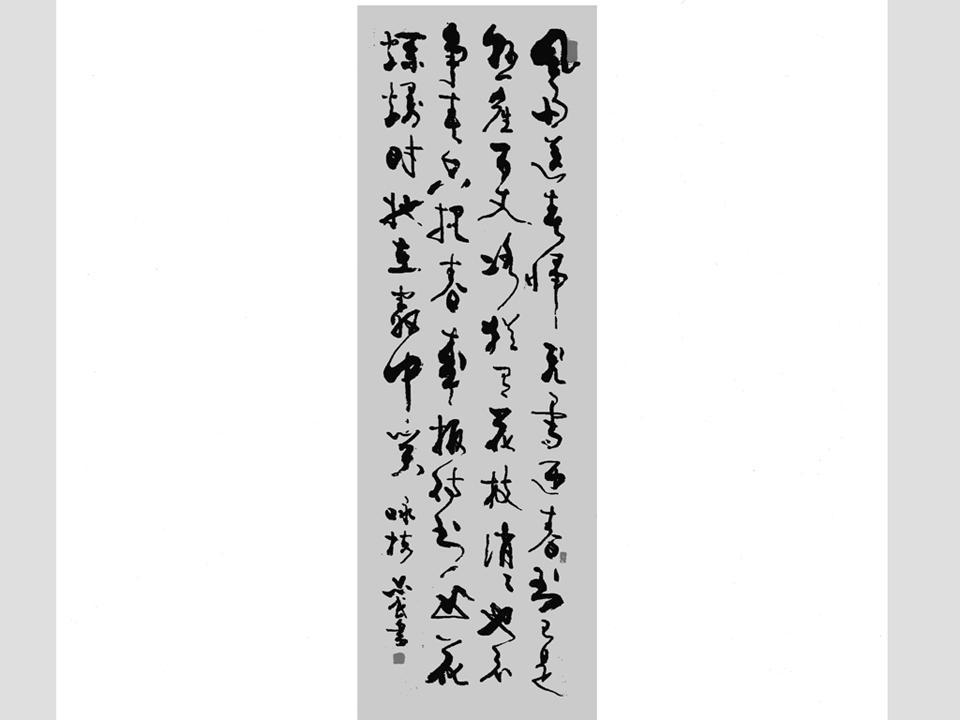 風雨送春归飛雪迎春到已是
悬崖百丈冰犹有花枝俏々也不
争春只把春来报待到山花
烂熳时她在丛中笑 咏梅 書